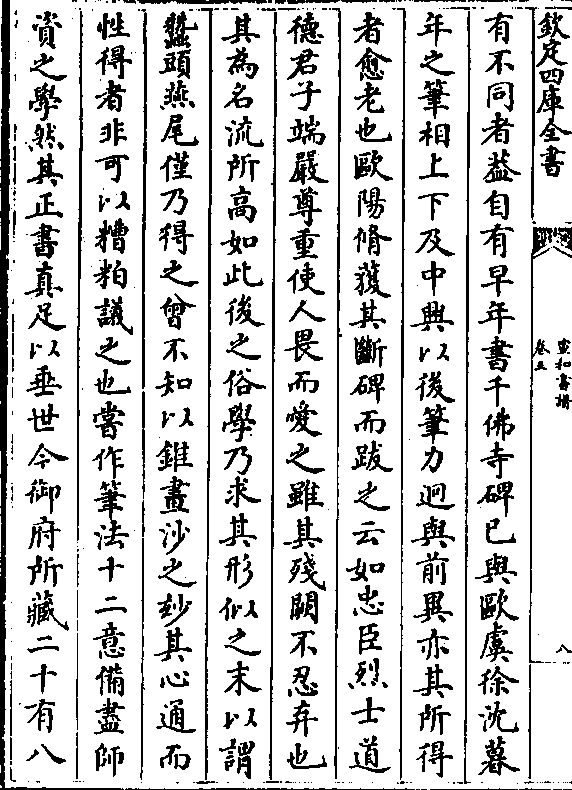 欽定四庫全書
宣和書譜
卷五
八
有不同者葢自有早年書千佛寺碑已與歐虞徐沈暮
年之筆相上下及中興以後筆力迥與前異亦其所得
者愈老也歐陽脩獲其斷碑而跋之云如忠臣烈士道
德君子端嚴尊重使人畏而愛之雖其殘闕不忍弃也
其為名流所高如此後之俗學乃求其形似之末以謂
蠶頭燕尾僅乃得之曾不知以錐畫沙之玅其心通而
性得者非可以糟粕議之也嘗作筆法十二意備盡師
資之學然其正書真足以垂世今御府所藏二十有八